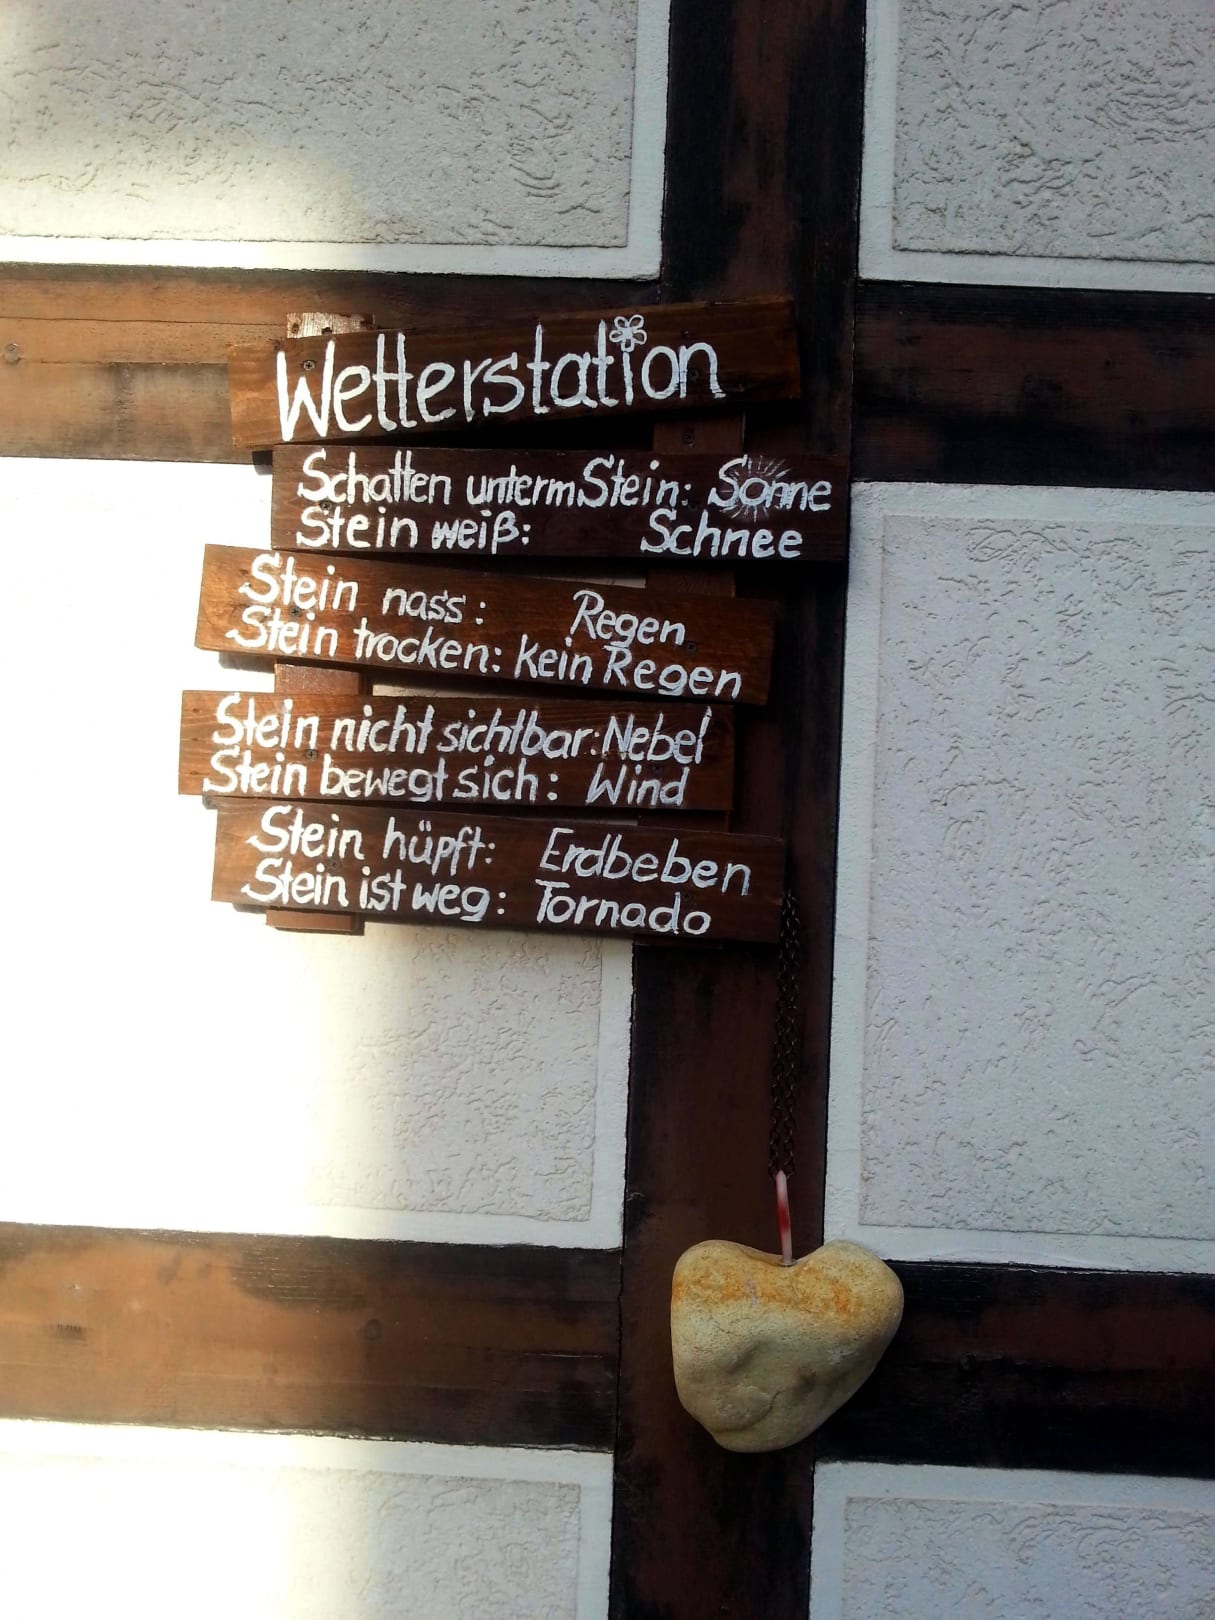 Wetterstation
Schatten unterm Stein: Sonne
Stein weiß: Schnee
Stein nass: Regen
Stein trocken: kein Regen
Stein nicht sichtbar: Nebel
Stein bewegt sich: Wind
Stein hüpft: Erdbeben
Stein ist weg: Tornado